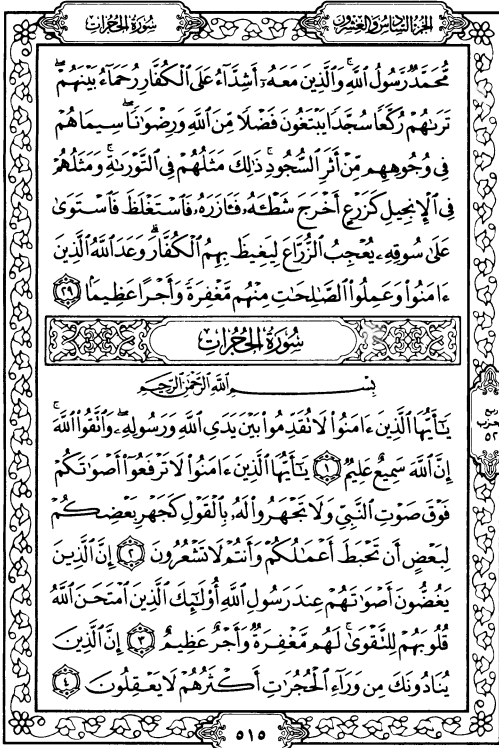 سُورَةُ الحُجُرَاتِ
الجُزْءُ السَّادِسُ وَالعِشْرُونَ
مُّحَمَّدٌ رَّسُولُ ٱللَّهِۚ وَٱلَّذِينَ مَعَهُۥٓ أَشِدَّآءُ عَلَى ٱلۡكُفَّارِ رُحَمَآءُ بَيۡنَهُمۡۖ
تَرَىٰهُمۡ رُكَّعٗا سُجَّدٗا يَبۡتَغُونَ فَضۡلٗا مِّنَ ٱللَّهِ وَرِضۡوَٰنٗاۖ سِيمَاهُمۡ
فِي وُجُوهِهِم مِّنۡ أَثَرِ ٱلسُّجُودِۚ ذَٰلِكَ مَثَلُهُمۡ فِي ٱلتَّوۡرَىٰةِۚ وَمَثَلُهُمۡ
فِي ٱلۡإِنجِيلِ كَزَرۡعٍ أَخۡرَجَ شَطۡـَٔهُۥ فَـَٔازَرَهُۥ فَٱسۡتَغۡلَظَ فَٱسۡتَوَىٰ
عَلَىٰ سُوقِهِۦ يُعۡجِبُ ٱلزُّرَّاعَ لِيَغِيظَ بِهِمُ ٱلۡكُفَّارَۗ وَعَدَ ٱللَّهُ ٱلَّذِينَ
ءَامَنُواْ وَعَمِلُواْ ٱلصَّٰلِحَٰتِ مِنۡهُم مَّغۡفِرَةٗ وَأَجۡرًا عَظِيمَۢا ٢٩
سُورَةُ الحُجُرَاتِ
بِسۡمِ ٱللَّهِ ٱلرَّحۡمَٰنِ ٱلرَّحِيمِ
يَٰٓأَيُّهَا ٱلَّذِينَ ءَامَنُواْ لَا تُقَدِّمُواْ بَيۡنَ يَدَيِ ٱللَّهِ وَرَسُولِهِۦۖ وَٱتَّقُواْ ٱللَّهَۚ
إِنَّ ٱللَّهَ سَمِيعٌ عَلِيمٞ ١ يَٰٓأَيُّهَا ٱلَّذِينَ ءَامَنُواْ لَا تَرۡفَعُوٓاْ أَصۡوَٰتَكُمۡ
فَوۡقَ صَوۡتِ ٱلنَّبِيِّ وَلَا تَجۡهَرُواْ لَهُۥ بِٱلۡقَوۡلِ كَجَهۡرِ بَعۡضِكُمۡ
لِبَعۡضٍ أَن تَحۡبَطَ أَعۡمَٰلُكُمۡ وَأَنتُمۡ لَا تَشۡعُرُونَ ٢ إِنَّ ٱلَّذِينَ
يَغُضُّونَ أَصۡوَٰتَهُمۡ عِندَ رَسُولِ ٱللَّهِ أُوْلَٰٓئِكَ ٱلَّذِينَ ٱمۡتَحَنَ ٱللَّهُ
قُلُوبَهُمۡ لِلتَّقۡوَىٰۚ لَهُم مَّغۡفِرَةٞ وَأَجۡرٌ عَظِيمٌ ٣ إِنَّ ٱلَّذِينَ
يُنَادُونَكَ مِن وَرَآءِ ٱلۡحُجُرَٰتِ أَكۡثَرُهُمۡ لَا يَعۡقِلُونَ ٤
٥١٥